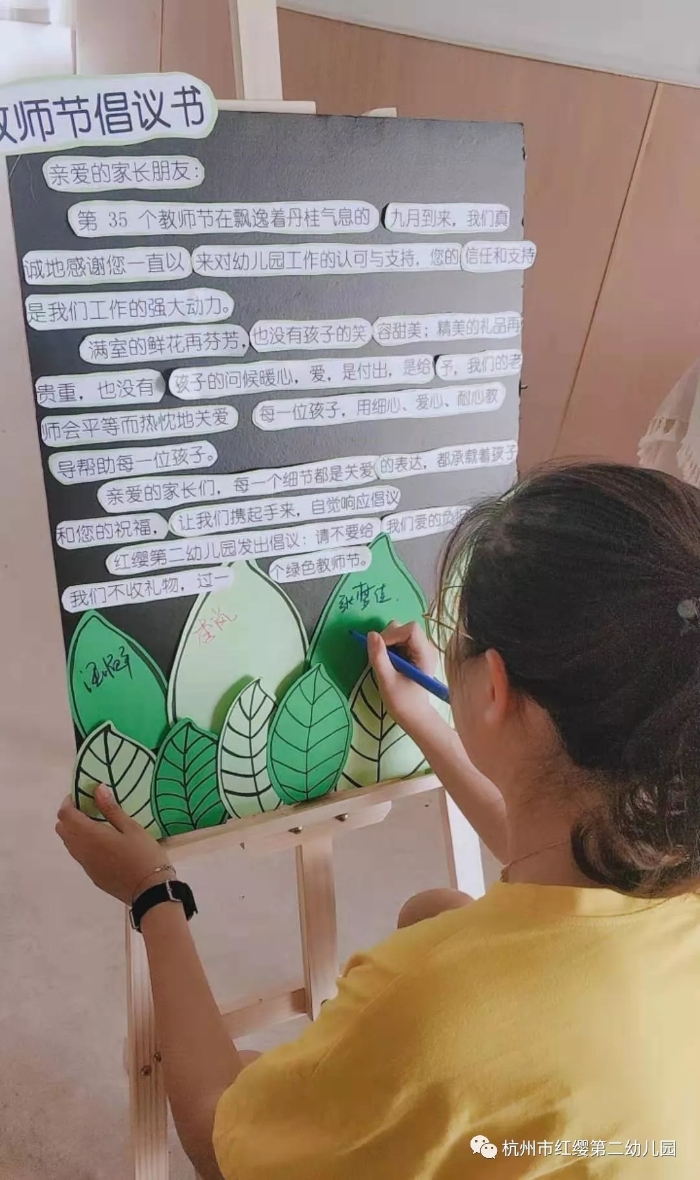 教师节倡议书
亲爱的家长朋友：
第 35 个教师节在飘逸着丹桂气息的 九月到来，我们真
诚地感谢您一直以 来对幼儿园工作的认可与支持，您的 信任和支持
是我们工作的强大动力。
满室的鲜花再芬芳， 也没有孩子的笑 容甜美；精美的礼品再
贵重，也没有 孩子的问候暖心，爱，是付出，是给 予，我们的老
师会平等而热忱地关爱 每一位孩子，用细心、爱心、耐心教
导帮助每一位孩子。
亲爱的家长们，每一个细节都是关爱 的表达，都承载着孩子
和您的祝福， 让我们携起手来，自觉响应倡议
红缨第二幼儿园发出倡议：请不要给 我们爱的负担
我们不收礼物，过一 个绿色教师节。
张梦佳
杭州市红缨第二幼儿园